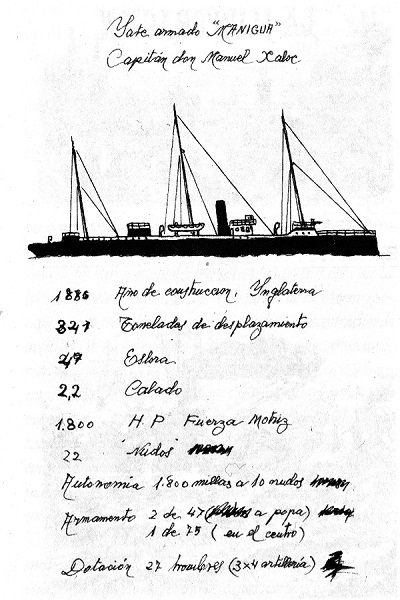 Yate armado "MANIGUA"
Capitán don Manuel Xaloc
1886 Año de construccion. Ynglaterra
Toneladas de desplazamiento
Eslora
2,2 Calado
1.800 H.P Fuerza Motriz
22 Nudos
Autonomia 1.800 millas a 10 nudos
Armamento 2 de 47 ( a popa)
1 de 75 ( en el centro)
Dotación 27 hombres (3x4 artillería)